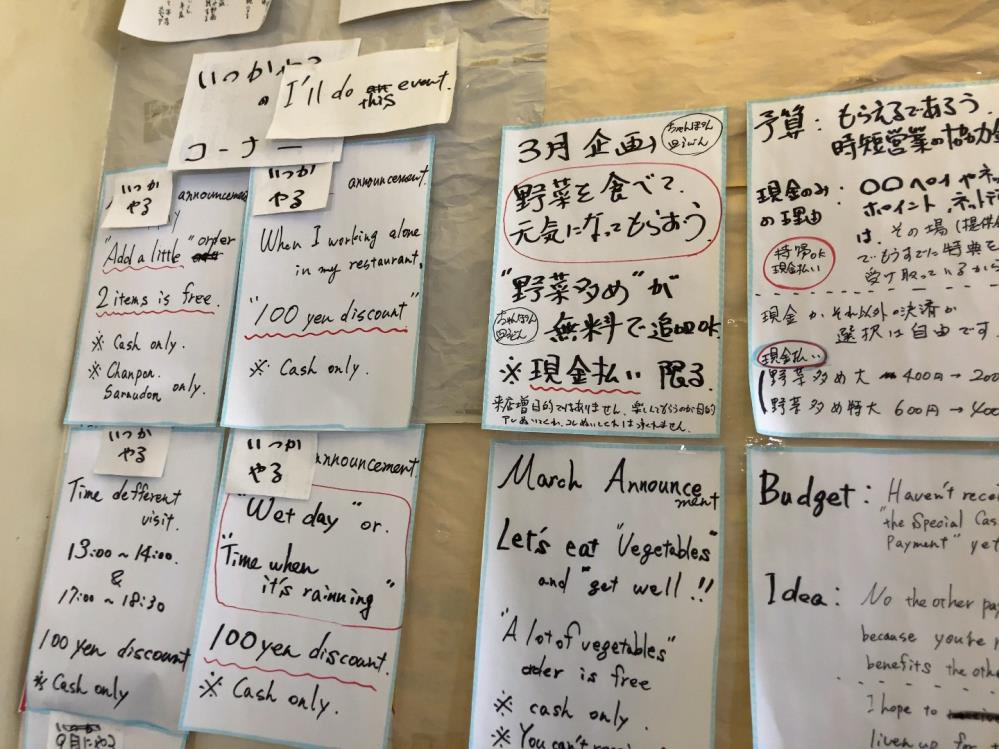 いつかやる
の I'll do this event.
コーナー
いつか
やる
announcement
"Add a little" order
2 items is free.
※ Cash only.
※ Chanpon.
Saraudon only.
いつか
やる
announcement.
When I working alone
in my restaurant,
"100 yen discount"
※ Cash only.
いつか
やる
Time defferent
visit.
13:00~14:00.
&
17:00~18:30
100 yen discount
※ Cash only
いつか
やる
announcement.
"Wet day" or.
"Time when
it's rainning"
100 yen discount.
※ Cash only.
9月にやる
3月 企画
ちゃんぽん
皿うどん
野菜を食べて
元気になってもらおう。
"野菜多め"が
ちゃんぽん
皿うどん
無料で追加ok
※ 現金払い 限る。
来店増目的ではありません。楽しんでもらうのが目的
March Announcement
Let's eat "Vegetables"
and "get well!!
"A lot of vegetables"
order is free
※ cash only.
※ You can't
予算: もらえるであろう。
時短営業の協力金
現金のみ
の理由
: 〇〇ペイやネッ
ポイント、ネット
は、その場(提供
でもうすでに特典を
受け取っているから
持帰ok
現金払い
現金かそれ以外の決済か
選択は自由です
現金払い
野菜多め大 400円→200
野菜多め特大 600円→400
Budget: Haven't
"the Special Cas
Payment" yet
Idea: No the other pa
because you're
benefits the othe
I hope to
liven up for